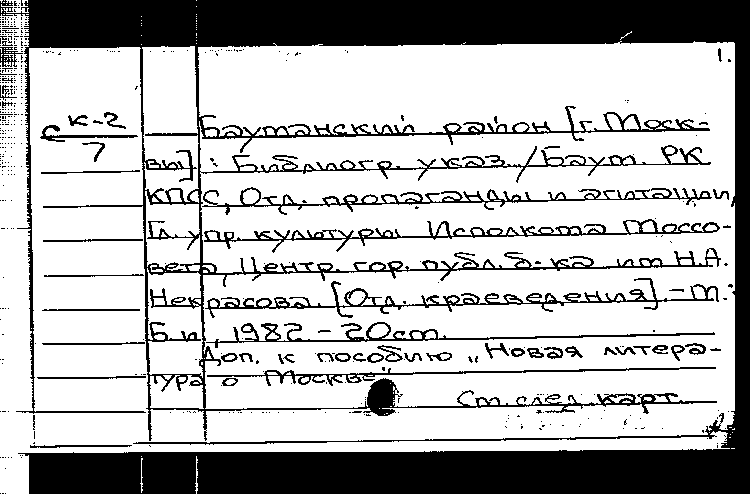 1.
с к-2
7
Бауманский район [г. Моск-
вы] : Библиогр. указ. / Баум. РК
КПСС, Отд. пропаганды и агитации,
Гл. упр. культуры Исполкома Моссо-
вета, Центр. гор. публ. б-ка им Н.А.
Некрасова. [Отд. краеведения]. - М.:
Б. и., 1982. - 20 см.
Доп. к пособию „Новая литера-
тура о Москве"
См. след. карт.